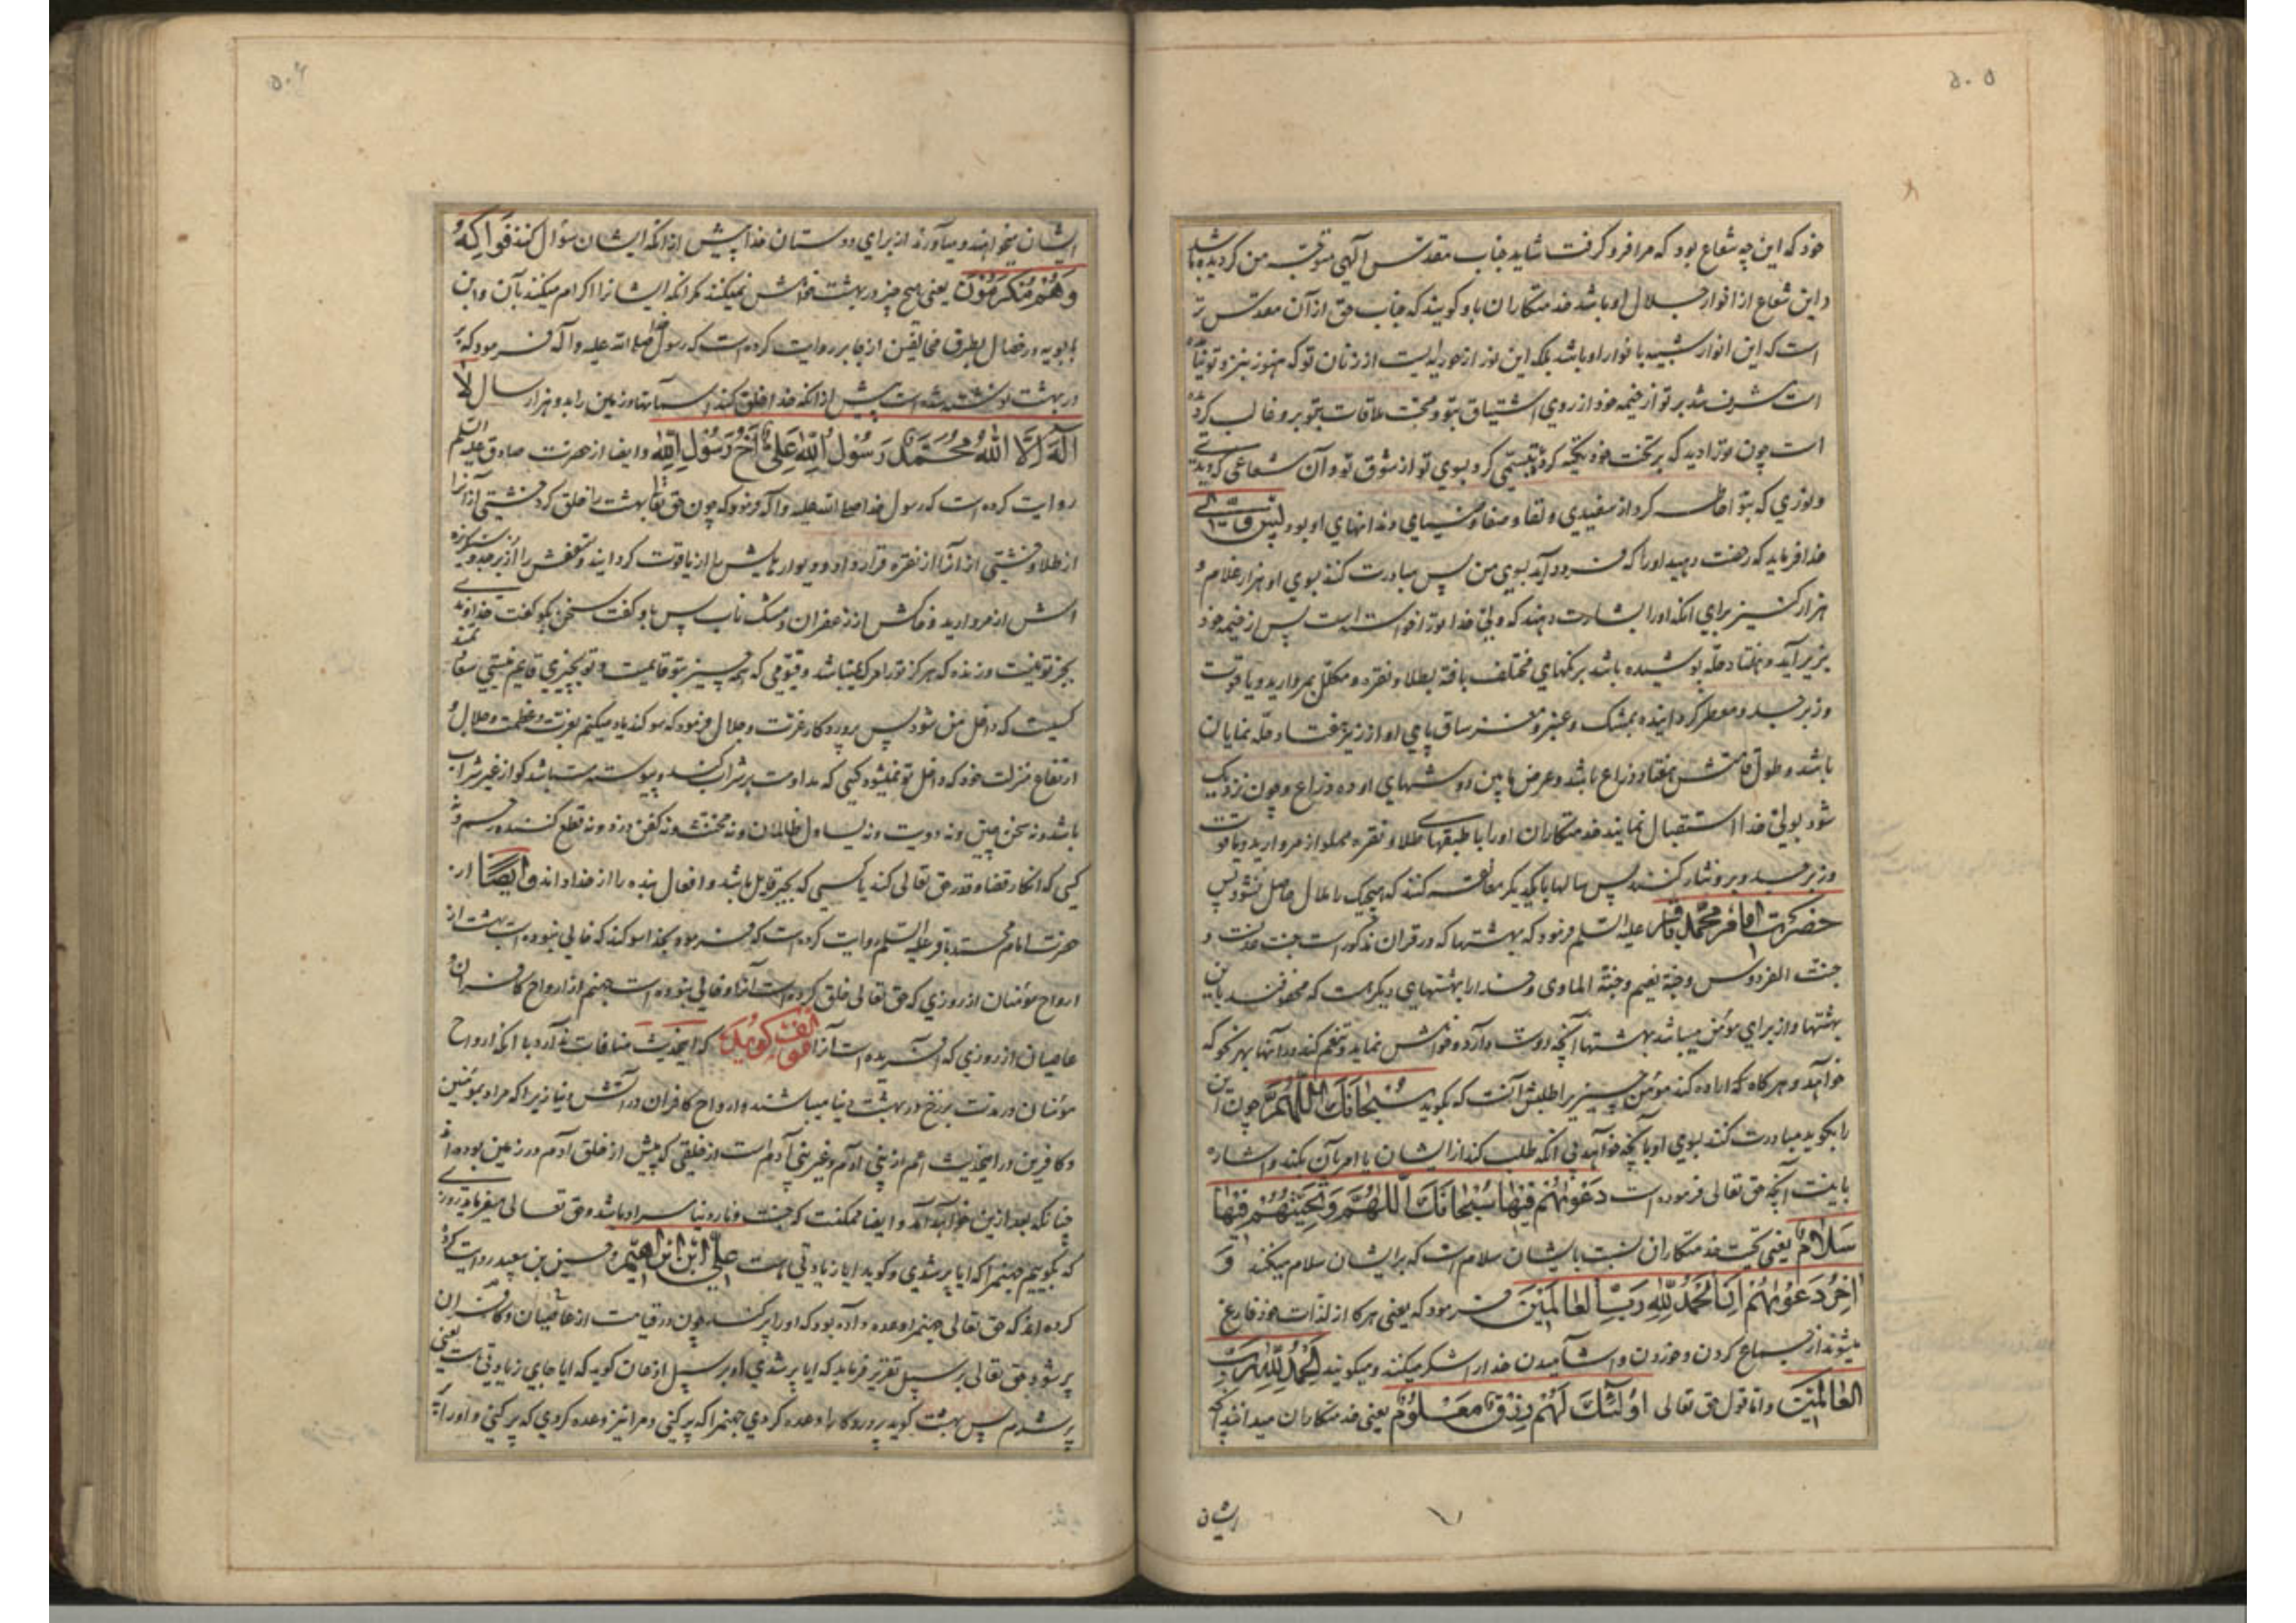 ۵۰۵
خود که این چه شعاع بود که مرا فرو گرفت شاید جناب مقدس الهی متوجه من گردیده باشد
و این شعاع از انوار جلال او باشد خدمتکاران باو گویند که جناب حق از آن مقدس تر
است که این انوار شبیه بانوار او باشد بلکه این نور از حوریه ایست از زنان تو که هنوز بنزد تو نیامده
است مشرف شد بر تو از خیمه خود از روی اشتیاق بتو و محبت ملاقات تو برو غالب گردیده
است چون تو را دید که بر تخت خود تکیه کرده تبسمی کرد بسوی تو از شوق تو و آن شعاعی که دیدی
و نوری که بتو احاطه کرد از سفیدی و نقا و صفا و ضیای دندانهای او بود پس حق تعالی
خدا فرماید که رخصت دهید او را که فرود آید بسوی من پس مبادرت کنند بسوی او هزار غلام و
هزار کنیز برای آنکه او را بشارت دهند که ولی خدا تو را خواسته است پس از خیمه خود
بزیر آید و هفتاد حله پوشیده باشد برنگهای مختلف بافته بطلا و نقره و مکلل بمروارید و یاقوت
و زبرجد و معطر گردانیده بمشک و عنبر و مغز ساق پای او از زیر هفتاد حله نمایان
باشد و طول قامتش هفتاد ذراع باشد و عرض مابین دوشهای او ده ذراع و چون نزدیک
شود بولی خدا استقبال نمایند خدمتکاران او را با طبقهای طلا و نقره مملو از مروارید و یاقوت
و زبرجد و برو نثار کنند پس سالها با یکدیگر معانقه کنند که هیچیک را ملال حاصل نشود پس
حضرت امام محمد باقر علیه السلم فرمود که بهشتها که در قران مذکور است جنت عدنست و
جنت الفردوس و جنة نعیم و جنة الماوی و خدا را بهشتهای دیگر هست که محفوفند باین
بهشتها و از برای مؤمن میباشد بهشتها آنچه دوست دارد و خواهش نماید و تنعم کند در آنها بهر نحو که
خواهد و هرگاه که اراده کند مؤمن چیزیرا طلبش آنست که بگوید سُبْحَانَكَ اللّٰهُمَّ چون این
را بگوید مبادرت کنند بسوی او بآنچه خواهد بی آنکه طلب کند از ایشان یا امر بآن بکند و اشاره
باینست آنچه حق تعالی فرموده است دَعْوٰیهُمْ فِیهَا سُبْحَانَكَ اللّٰهُمَّ وَتَحِیَّتُهُمْ فِیهَا
سَلَامٌ یعنی تحیت خدمتکاران نسبت بایشان سلام است که برایشان سلام میکنند وَ
آخِرُ دَعْوٰیهُمْ اَنِ الْحَمْدُ لِلّٰهِ رَبِّ الْعَالَمِینَ فرمود که یعنی هرگاه از لذات خود فارغ
میشوند از جماع کردن و خوردن و آشامیدن خدا را شکر میکنند و میگویند الْحَمْدُ لِلّٰهِ رَبِّ
الْعَالَمِینَ و اما قول حق تعالی اُولٰئِكَ لَهُمْ رِزْقٌ مَعْلُومٌ یعنی خدمتکاران میدانند آنچه
ایشان
۵۰۶
ایشان میخواهند و میآورند از برای دوستان خدا پیش از آنکه ایشان سؤال کنند فَوَاکِهُ
وَهُمْ مُکْرَمُونَ یعنی هیچ چیز در بهشت خواهش نمیکنند مگر آنکه ایشانرا اکرام میکنند بآن و ابن
بابویه در خصال بطرق مخالفین از جابر روایت کرده است که رسول خدا صلی الله علیه و آله فرمود که بر
در بهشت نوشته شده است پیش از آنکه خدا خلق کند آسمانها و زمین را بدو هزار سال لَا
اِلٰهَ اِلَّا اللّٰهُ مُحَمَّدٌ رَسُولُ اللّٰهِ عَلِیٌّ اَخُو رَسُولِ اللّٰهِ و ایضا از حضرت صادق علیه السلم
روایت کرده است که رسول خدا صلی الله علیه و آله فرمود که چون حق تعالی بهشت را خلق کرد خشتی از آنرا
از طلا و خشتی از آنرا از نقره قرار داد و دیوارهایش را از یاقوت گردانید و سقفش را از زبرجد و سنگریزه
اش از مروارید و خاکش از زعفران و مشک ناب پس باو گفت سخن بگو گفت خداوندی
بجز تو نیست و زنده که هرگز تو را مرگ نمیباشد و قیومی که همه چیز بتو قایمست و تو بچیزی قایم نیستی سعادتمند
کسیست که داخل من شود پس پروردگار عزت و جلال فرمود که سوگند یاد میکنم بعزت و عظمت و جلال و
ارتفاع منزلت خود که داخل تو نمیشود کسی که مداومت بر شراب کند و پیوسته مست باشد گو از غیر شراب
باشد و نه سخن چین و نه دیوث و نه یساول ظالمان و نه مخنث و نه کفن دزد و نه قطع کننده رحم و نه
کسی که انکار قضا و قدر حق تعالی کند یا کسی که بجبر قایل باشد و افعال بنده را از خدا داند و ایضًا از
حضرت امام محمد باقر علیه السلم روایت کرده است که فرمود بخدا سوگند که خالی نبوده است بهشت از
ارواح مؤمنان از روزی که حق تعالی خلق کرده است آنرا و خالی نبوده است جهنم از ارواح کافران و
عاصیان از روزی که آفریده است آنرا مؤلف گوید که این حدیث منافات ندارد با آنکه ارواح
مؤمنان در مدت برزخ در بهشت دنیا میباشند و ارواح کافران در آتش دنیا زیرا که مراد بمؤمنین
و کافرین در اینحدیث اعم از بنی آدم و غیر بنی آدم است از خلقی که پیش از خلق آدم در زمین بوده اند
چنانکه بعد ازین خواهد آمد و ایضا ممکنست که جنت و نار دنیا مراد باشد و حق تعالی میفرماید روزی
که بگوییم جهنم را که آیا پر شدی و گوید آیا زیادتی هست علی ابن ابراهیم و حسین بن سعید روایت کرده
کرده اند که حق تعالی جهنم را وعده داده بود که او را پر کند چون در قیامت از عاصیان و کافران
پر شود حق تعالی بر سبیل تقریر فرماید که آیا پر شدی او بر سبیل اذعان گوید که آیا جای زیادتی هست یعنی
پر شدم پس بهشت گوید پروردگارا وعده کردی جهنم را که پر کنی و مرا نیز وعده کردی که پر کنی و او را